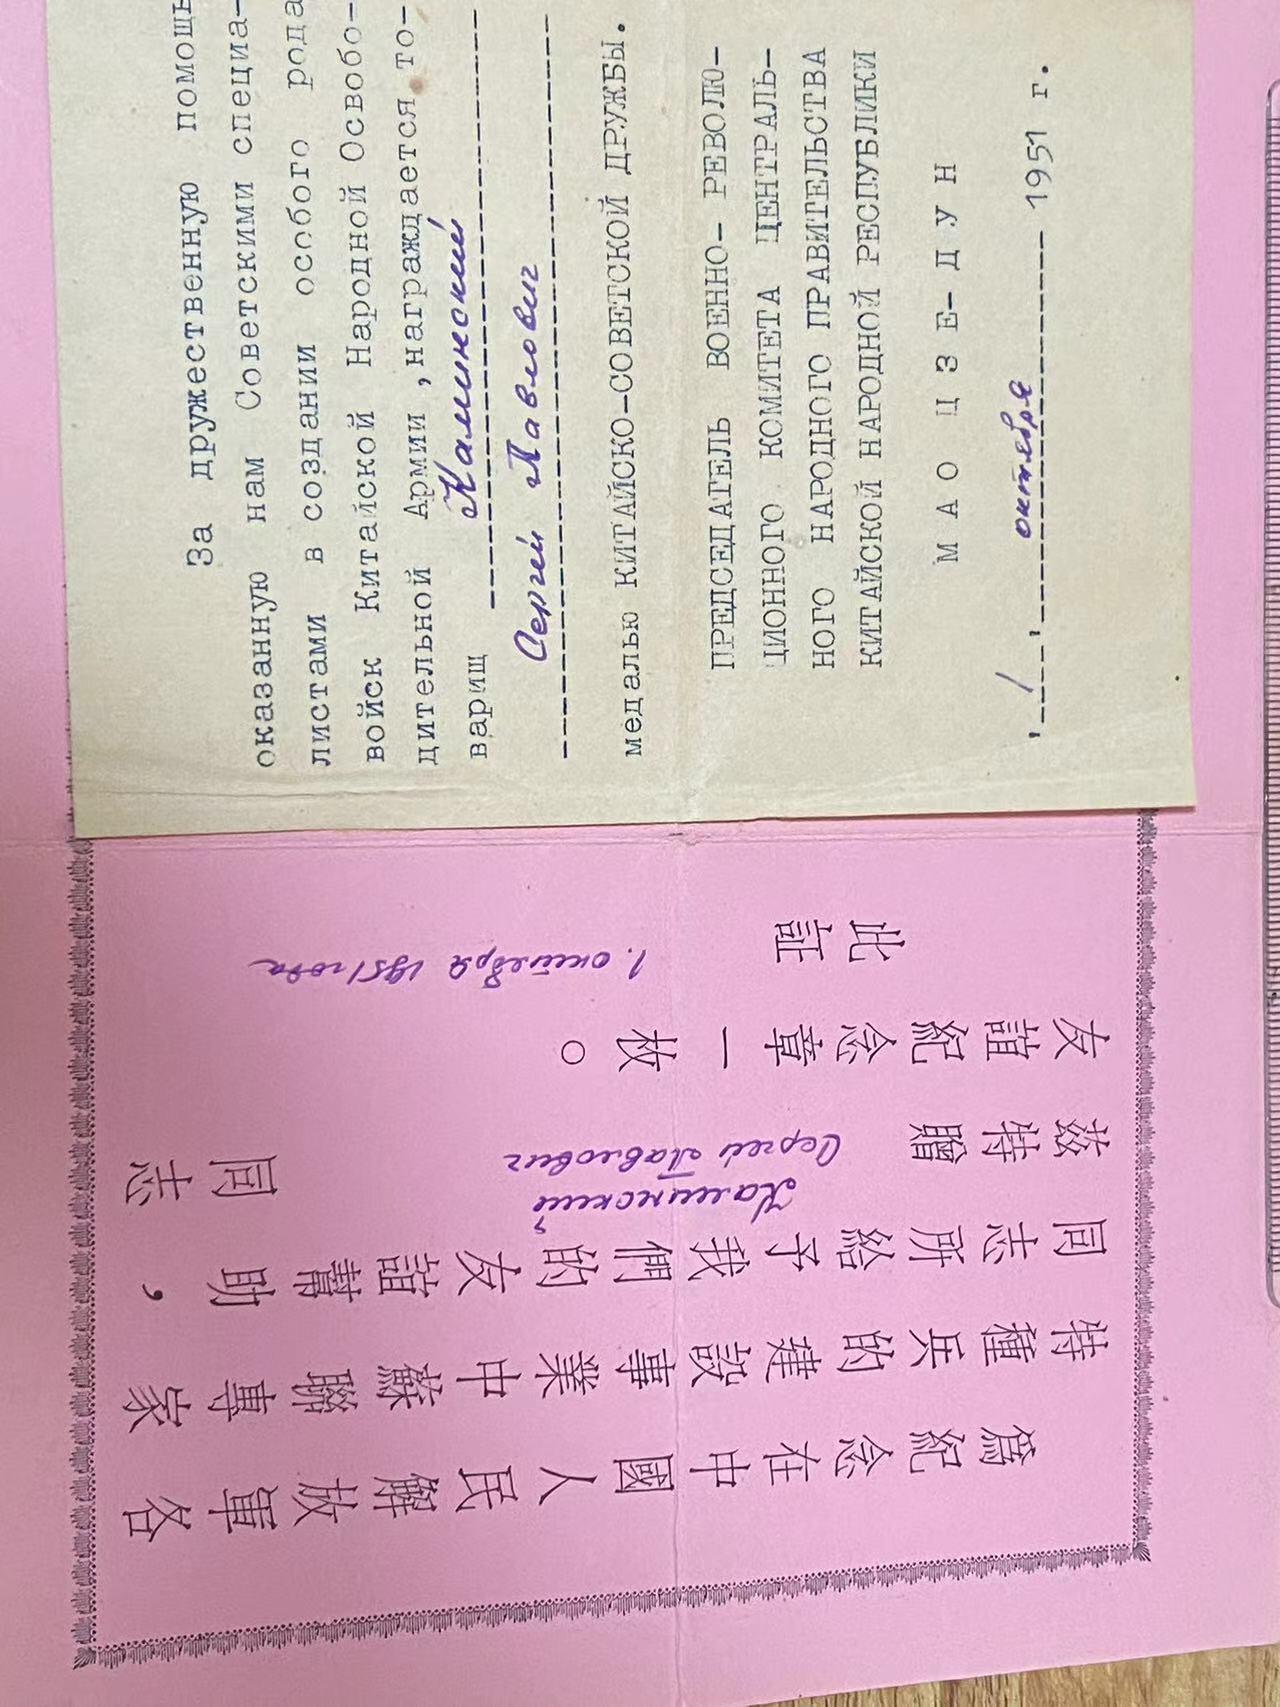 За дружественную помощь
оказанную нам Советскими специа-
листами в создании особого рода
войск Китайской Народной Освобо-
дительной Армии, награждается то-
варищ Калинский
Сергей Павлович
медалью КИТАЙСКО-СОВЕТСКОЙ ДРУЖБЫ.
ПРЕДСЕДАТЕЛЬ ВОЕННО- РЕВОЛЮ-
ЦИОННОГО КОМИТЕТА ЦЕНТРАЛЬ-
НОГО НАРОДНОГО ПРАВИТЕЛЬСТВА
КИТАЙСКОЙ НАРОДНОЙ РЕСПУБЛИКИ
МАО ЦЗЕ-ДУН
'1' октября 1951 г.
為紀念在中國人民解放軍各
特種兵的建設事業中蘇聯專家
同志所給予我們的友誼幫助，
茲特贈 Калинский Сергей Павлович 同志
友誼紀念章一枚。
此証
1. октября 1951 года